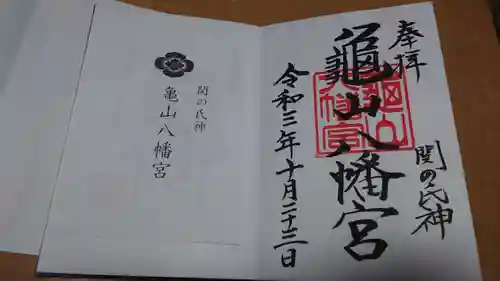 奉拝
関の氏神
亀山八幡宮
令和三年十月二十三日
関の氏神
亀山八幡宮